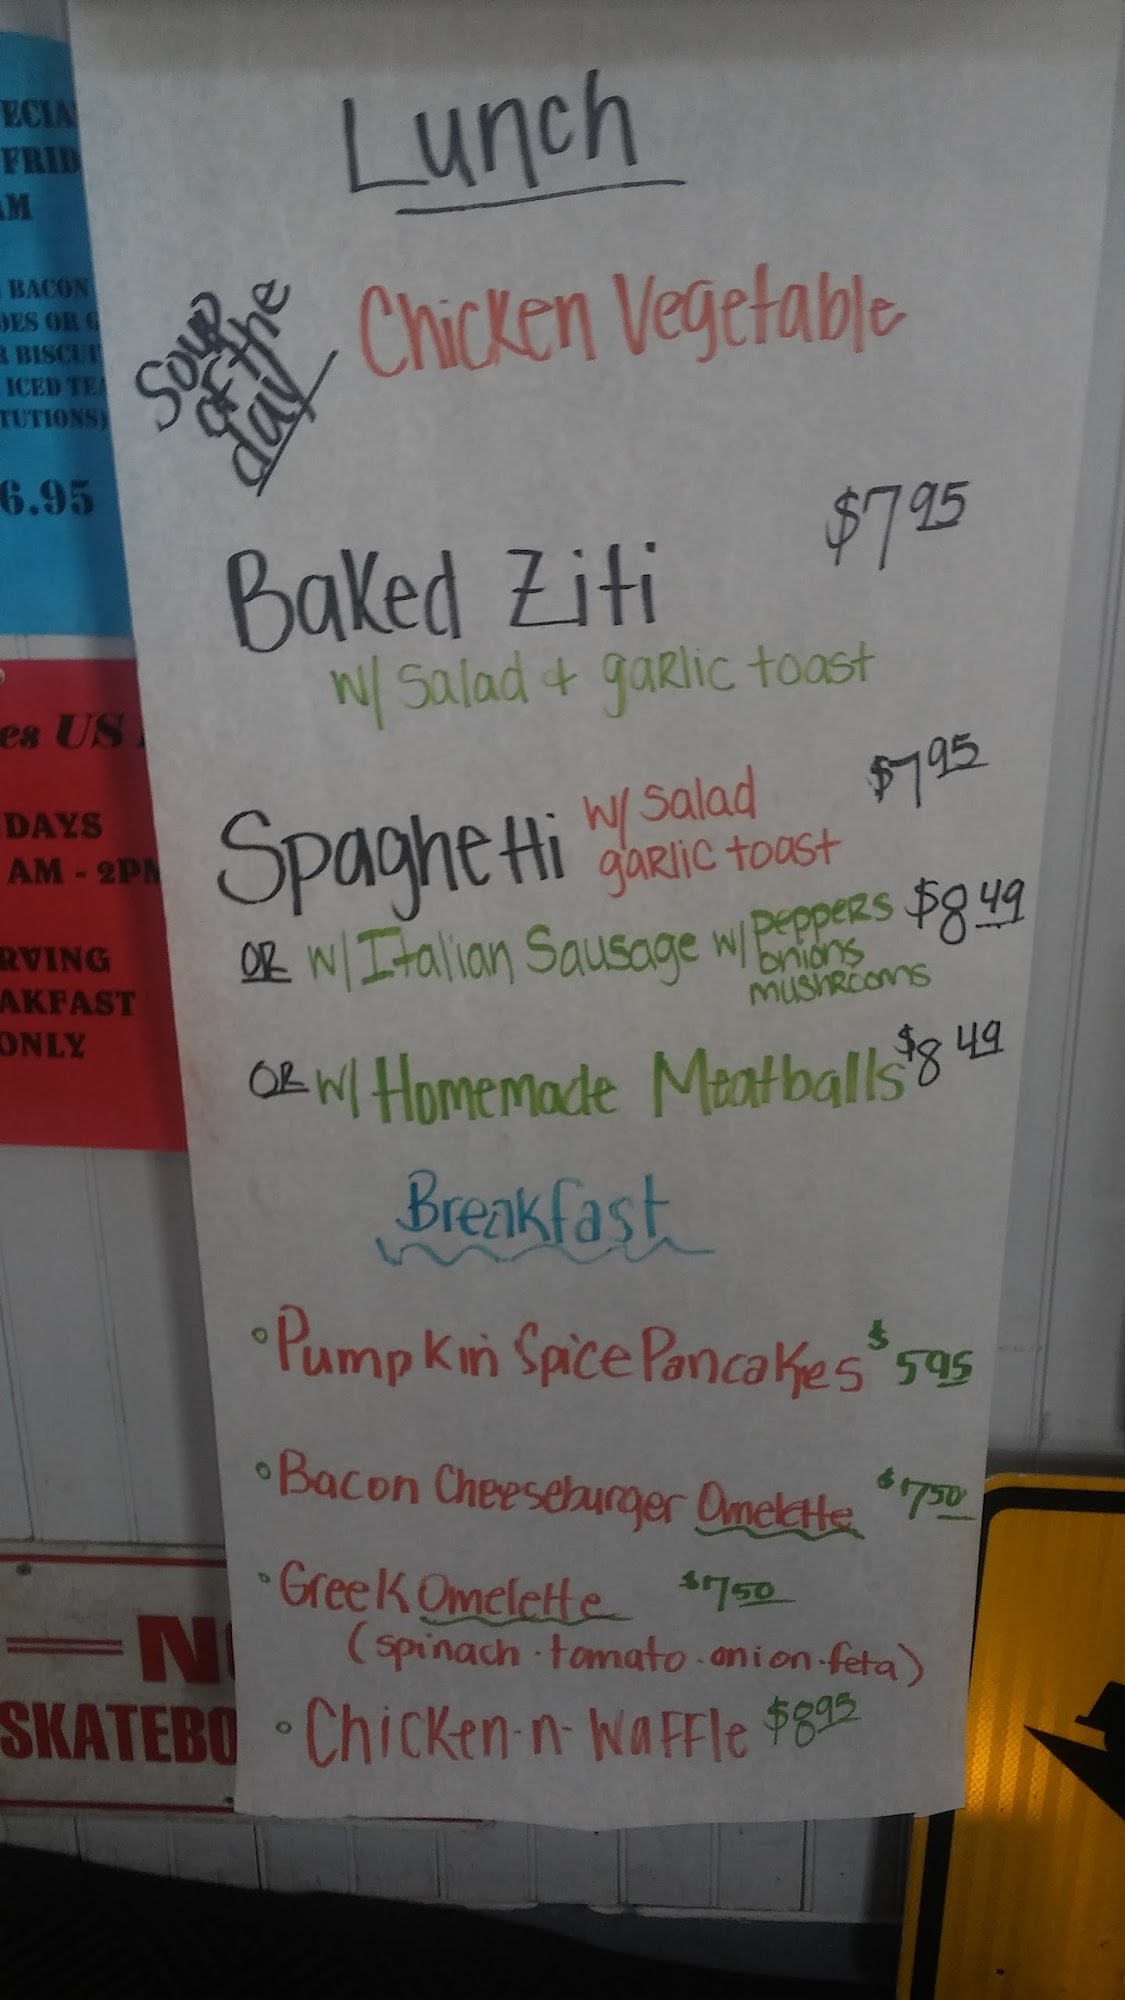 Lunch
Soup
of the
day
Chicken Vegetable
Baked Ziti $7 95
w/ Salad + garlic toast
Spaghetti w/ Salad $7 95
garlic toast
OR w/ Italian Sausage w/ peppers $8 49
onions
mushrooms
OR w/ Homemade Meatballs $8 49
Breakfast
Pumpkin Spice Pancakes $5 95
Bacon Cheeseburger Omelette $7 50
Greek Omelette $7 50
(spinach · tomato · onion · feta)
Chicken-n-Waffle $8 95
ECIA
FRID
AM
BACON
DES OR G
R BISCUI
ICED TEA
TUTIONS)
6.95
es US
DAYS
AM - 2PM
RVING
AKFAST
ONLY
NO
SKATEBO